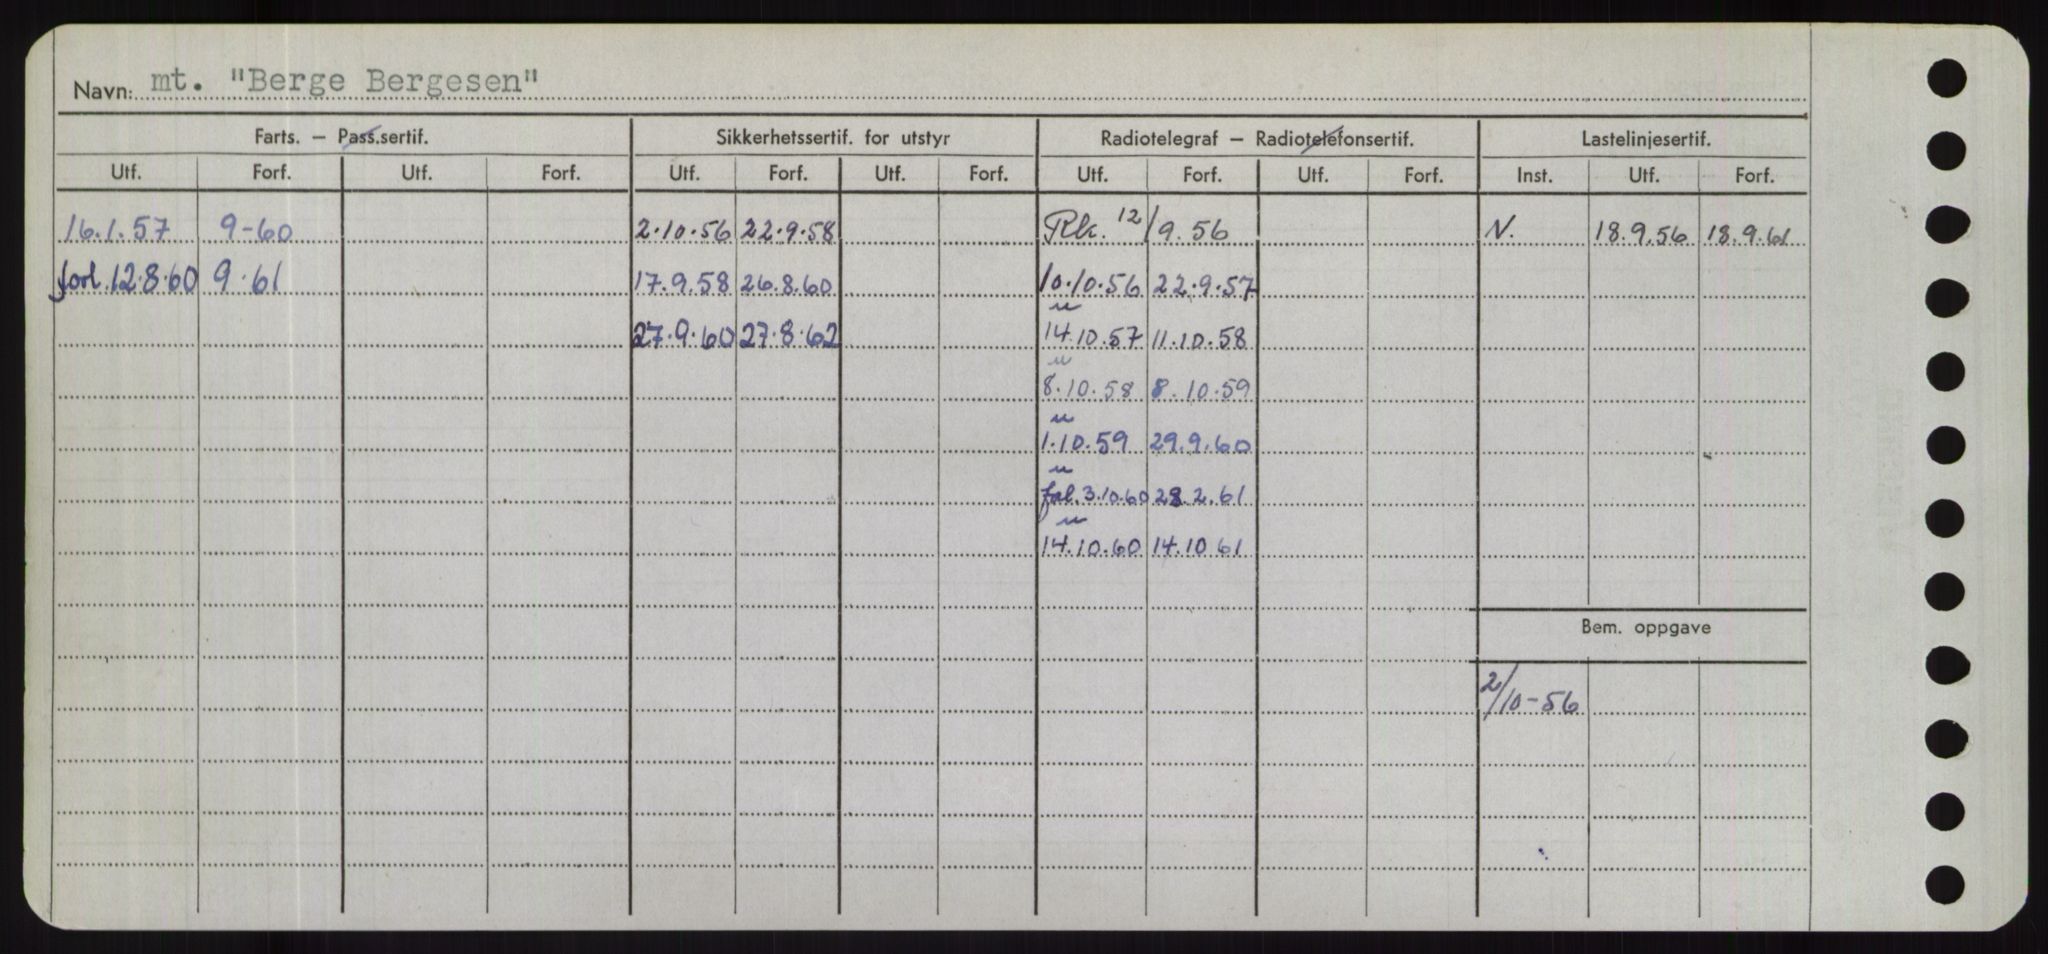 Navn: mt. "Berge Bergesen"
Farts. — Pass.sertif. Sikkerhetssertif. for utstyr Radiotelegraf — Radiotelefonsertif. Lastelinjesertif.
Utf. Forf. Utf. Forf. Utf. Forf. Utf. Forf. Utf. Forf. Utf. Forf. Inst. Utf. Forf.
16.1.57 9-60 2.10.56 22.9.58 Rk. 12/9.56 N. 18.9.56 18.9.61
forl. 12.8.60 9.61 17.9.58 26.8.60 10.10.56 22.9.57
27.9.60 27.8.62 14.10.57 11.10.58
8.10.58 8.10.59
1.10.59 29.9.60
3.10.60 28.2.61
14.10.60 14.10 61
Bem. oppgave
2/10-56